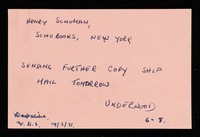 HENRY SCHUMAN,
SCHUBOOKS, NEW YORK
SENDING FURTHER COPY SHIP
MAIL TOMORROW
UNDERWOOD
6-8.
19/2/51.